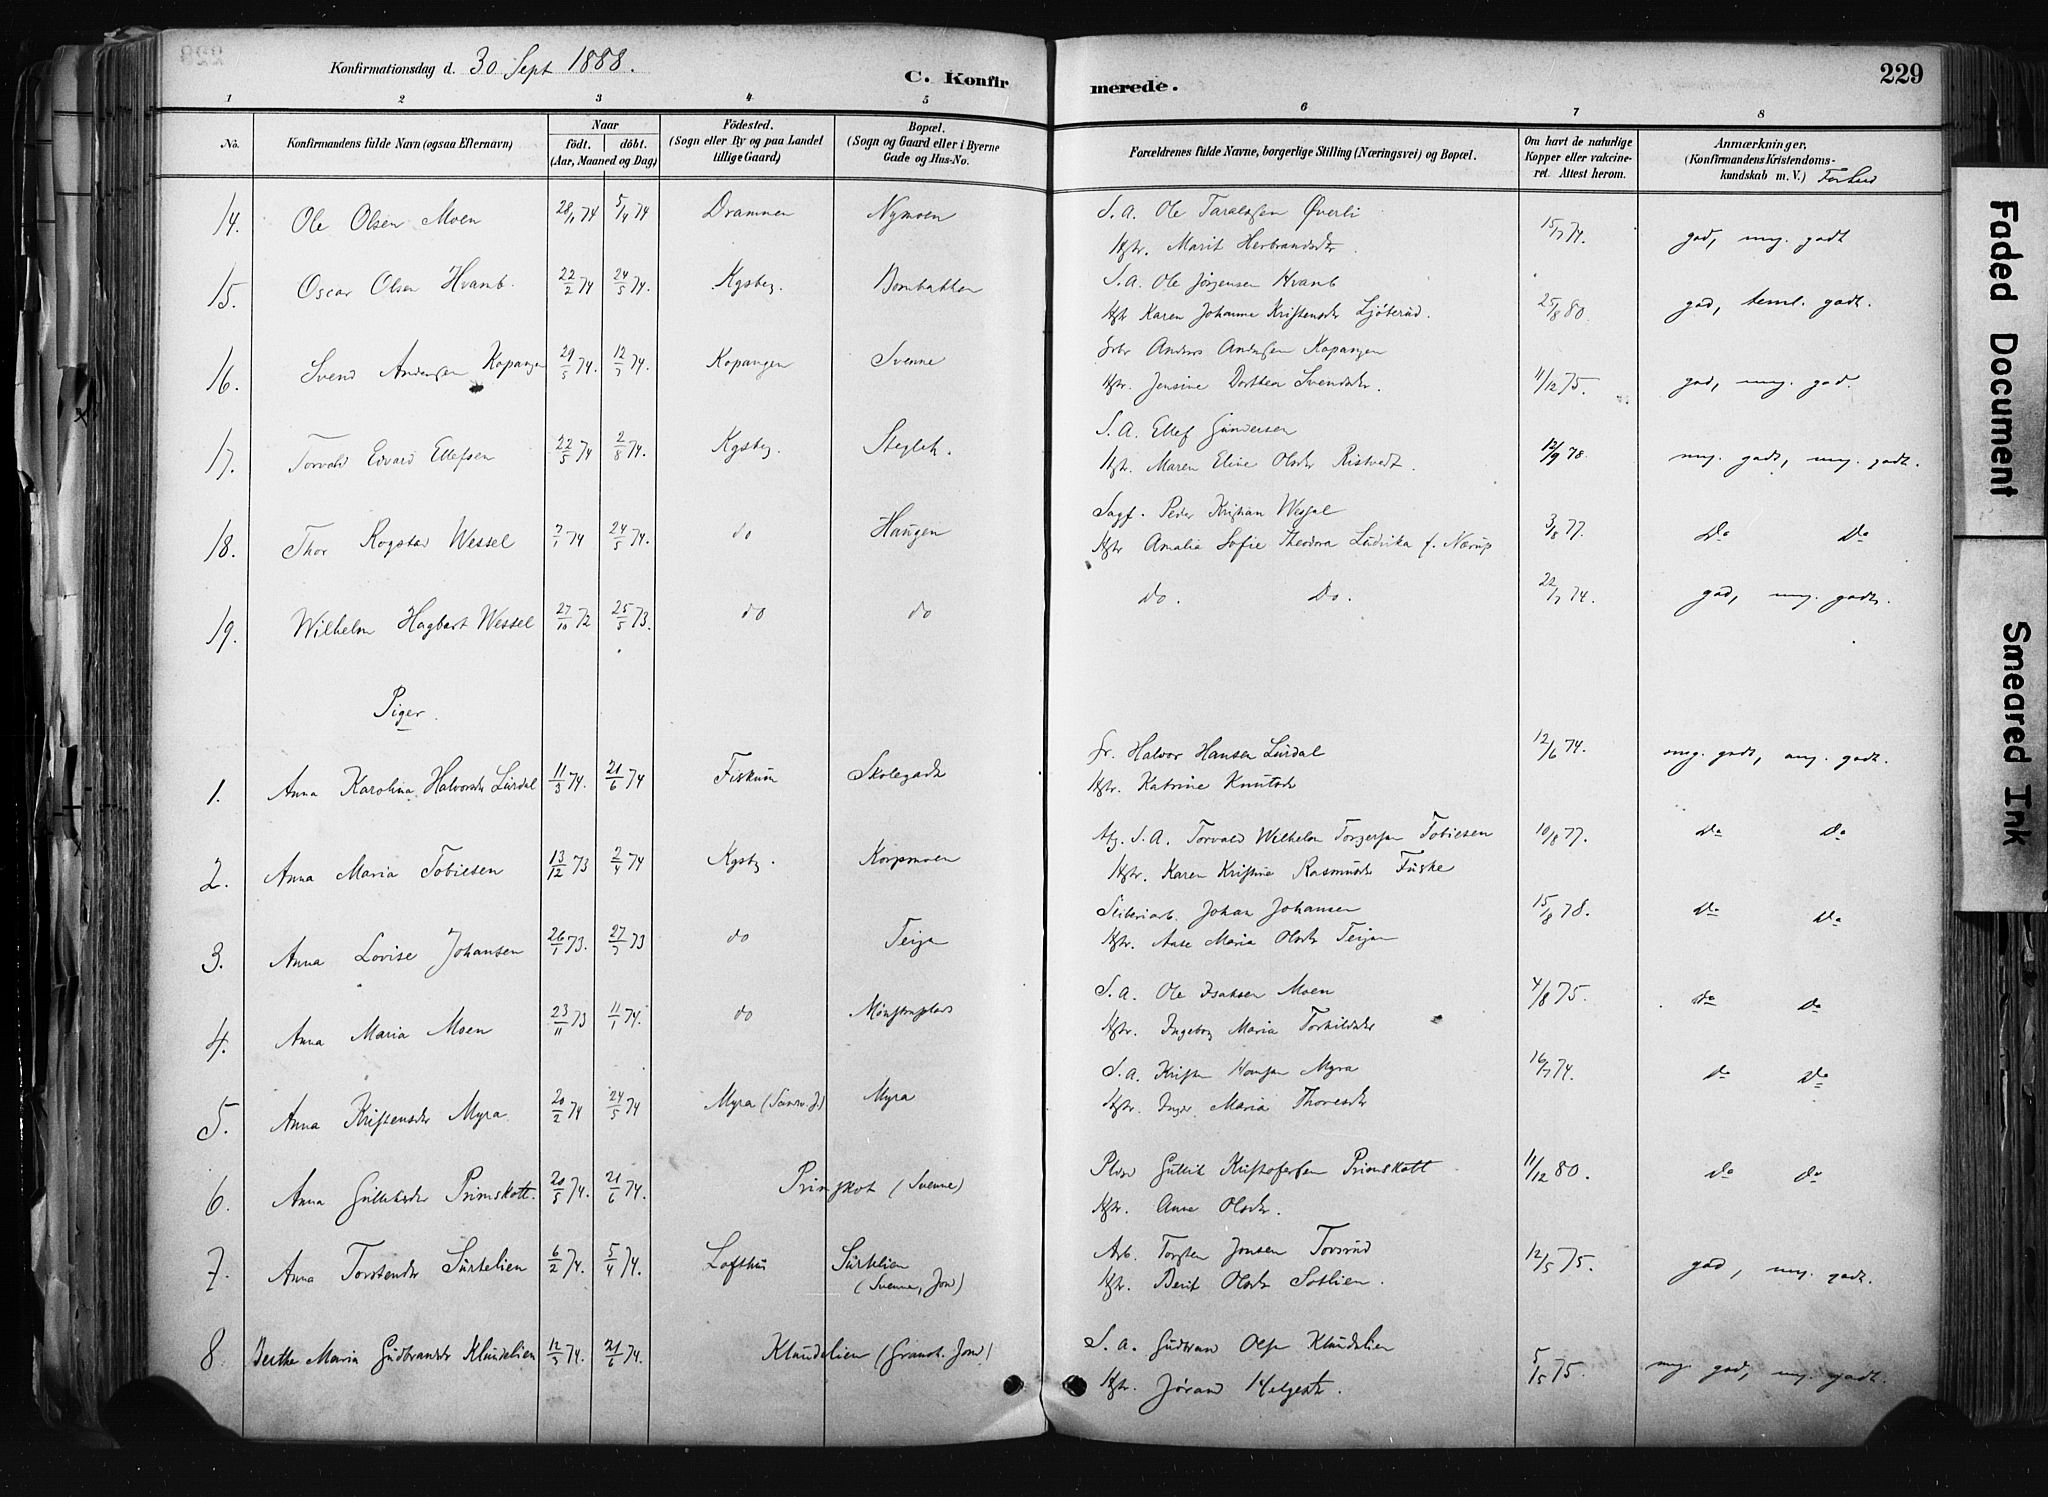 Konfirmationsdag d. 30 Sept 1888.
C. Konfirmerede.
229
1 2 3 4 5 6 7 8
No.
Konfirmandens fulde Navn (ogsaa Efternavn)
Naar
födt. döbt.
(Aar, Maaned og Dag)
Födested.
(Sogn eller By og paa Landet
tillige Gaard)
Bopæl.
(Sogn og Gaard eller i Byerne
Gade og Hus-No.
Forældrenes fulde Navne, borgerlige Stilling (Næringsvei) og Bopæl.
Om havt de naturlige
Kopper eller vakcine-
ret. Attest herom.
Anmærkninger.
(Konfirmandens Kristendoms-
kundskab m. V.) Forhold
14. Ole Olsen Moen 28/1 74 5/4 74 Drammen Nymoen S. A. Ole Taralsen Øverli 15/7 74. god, mg. godt
Hstr. Marit Herbrandsdtr.
15. Oscar Olsen Hvamb. 22/2 74 24/5 74. Kgsbg. Bombakken S. A. Ole Jörgensen Hvamb 25/8 80. god, teml. godt.
Hstr Karen Johanne Kristensdtr Ljöterud.
16. Svend Andersen Kopangen 29/5 74. 12/7 74. Kopangen Svenne Gbr Anders Andersen Kopangen 11/12 75. god, mg. god.
Hstr. Jensine Dorthea Svendsdtr.
17. Torvald Edvard Ellefsen 22/5 74 2/8 74. Kgsbg. Steglet. S. A. Ellef Gundersen 12/9 78. mg. godt, mg. godt.
Hstr. Maren Eline Olsdtr Ristvedt.
18. Thor Rogstad Wessel 7/1 74 24/5 74. do Haugen Sagf. Peder Kristian Wessel 3/8 77. Do Do
Hstr Amalia Sofie Theodora Ludvika f. Nærup
19. Wilhelm Hagbart Wessel 27/10 72 25/5 73. do do do. Do. 22/7 74. god, mg. godt.
Piger.
1. Anna Karolina Halvorsdtr Lurdal 11/3 74. 21/6 74 Fiskum Skolegade Gr. Halvor Hansen Lurdal 12/6 74. mg. godt, mg. godt.
Hstr. Katrine Knutsdtr
2. Anna Maria Tobiesen 13/12 73 2/4 74 Kgsbg. Korpmoen Afg. S. A. Torvald Wilhelm Torgersen Tobiesen 10/8 77. Do Do
Hstr. Karen Kristine Rasmusdtr Fuske
3. Anna Lovise Johansen 26/1 73. 27/7 73 do Teijen Sliberiarb. Johan Johansen 15/8 78. Do Do
Hstr. Aase Maria Olsdtr Teijen
4. Anna Maria Moen 23/11 73 11/1 74. do Mönstrplads S. A. Ole Isaksen Moen 4/8 75. Do Do
Hstr. Ingeborg Maria Torkildsdtr
5. Anna Kristensdtr Myra 20/2 74 24/5 74 Myra (Sandsv. J.) Myra S. A. Kristen Hansen Myra 16/7 74. Do Do
Hstr. Inger Maria Thoresdtr
6. Anna Gulliksdtr Primskott. 20/5 74. 21/6 74. Primskot (Svenne) Plds Gullik Kristofersen Primskott 11/12 80. Do Do
Hstr. Anne Olsdtr.
7. Anna Torstensdtr Surtelien 6/2 74. 5/4 74. Lofthus Surtelien Arb. Torsten Jonsen Torsrud 12/5 75. god, mg. godt.
(Svenne, Jon) Hstr. Berit Olsdtr Sotlien.
8. Berthe Maria Gudbrandsdtr Klundelien 12/3 74. 21/6 74. Klundelien (Granst. Jon) S. A. Gudbrand Olsen Klundelien 5/5 75. mg. god, mg. godt.
Hstr. Jörand Helgesdtr.
Faded Document
Smeared Ink